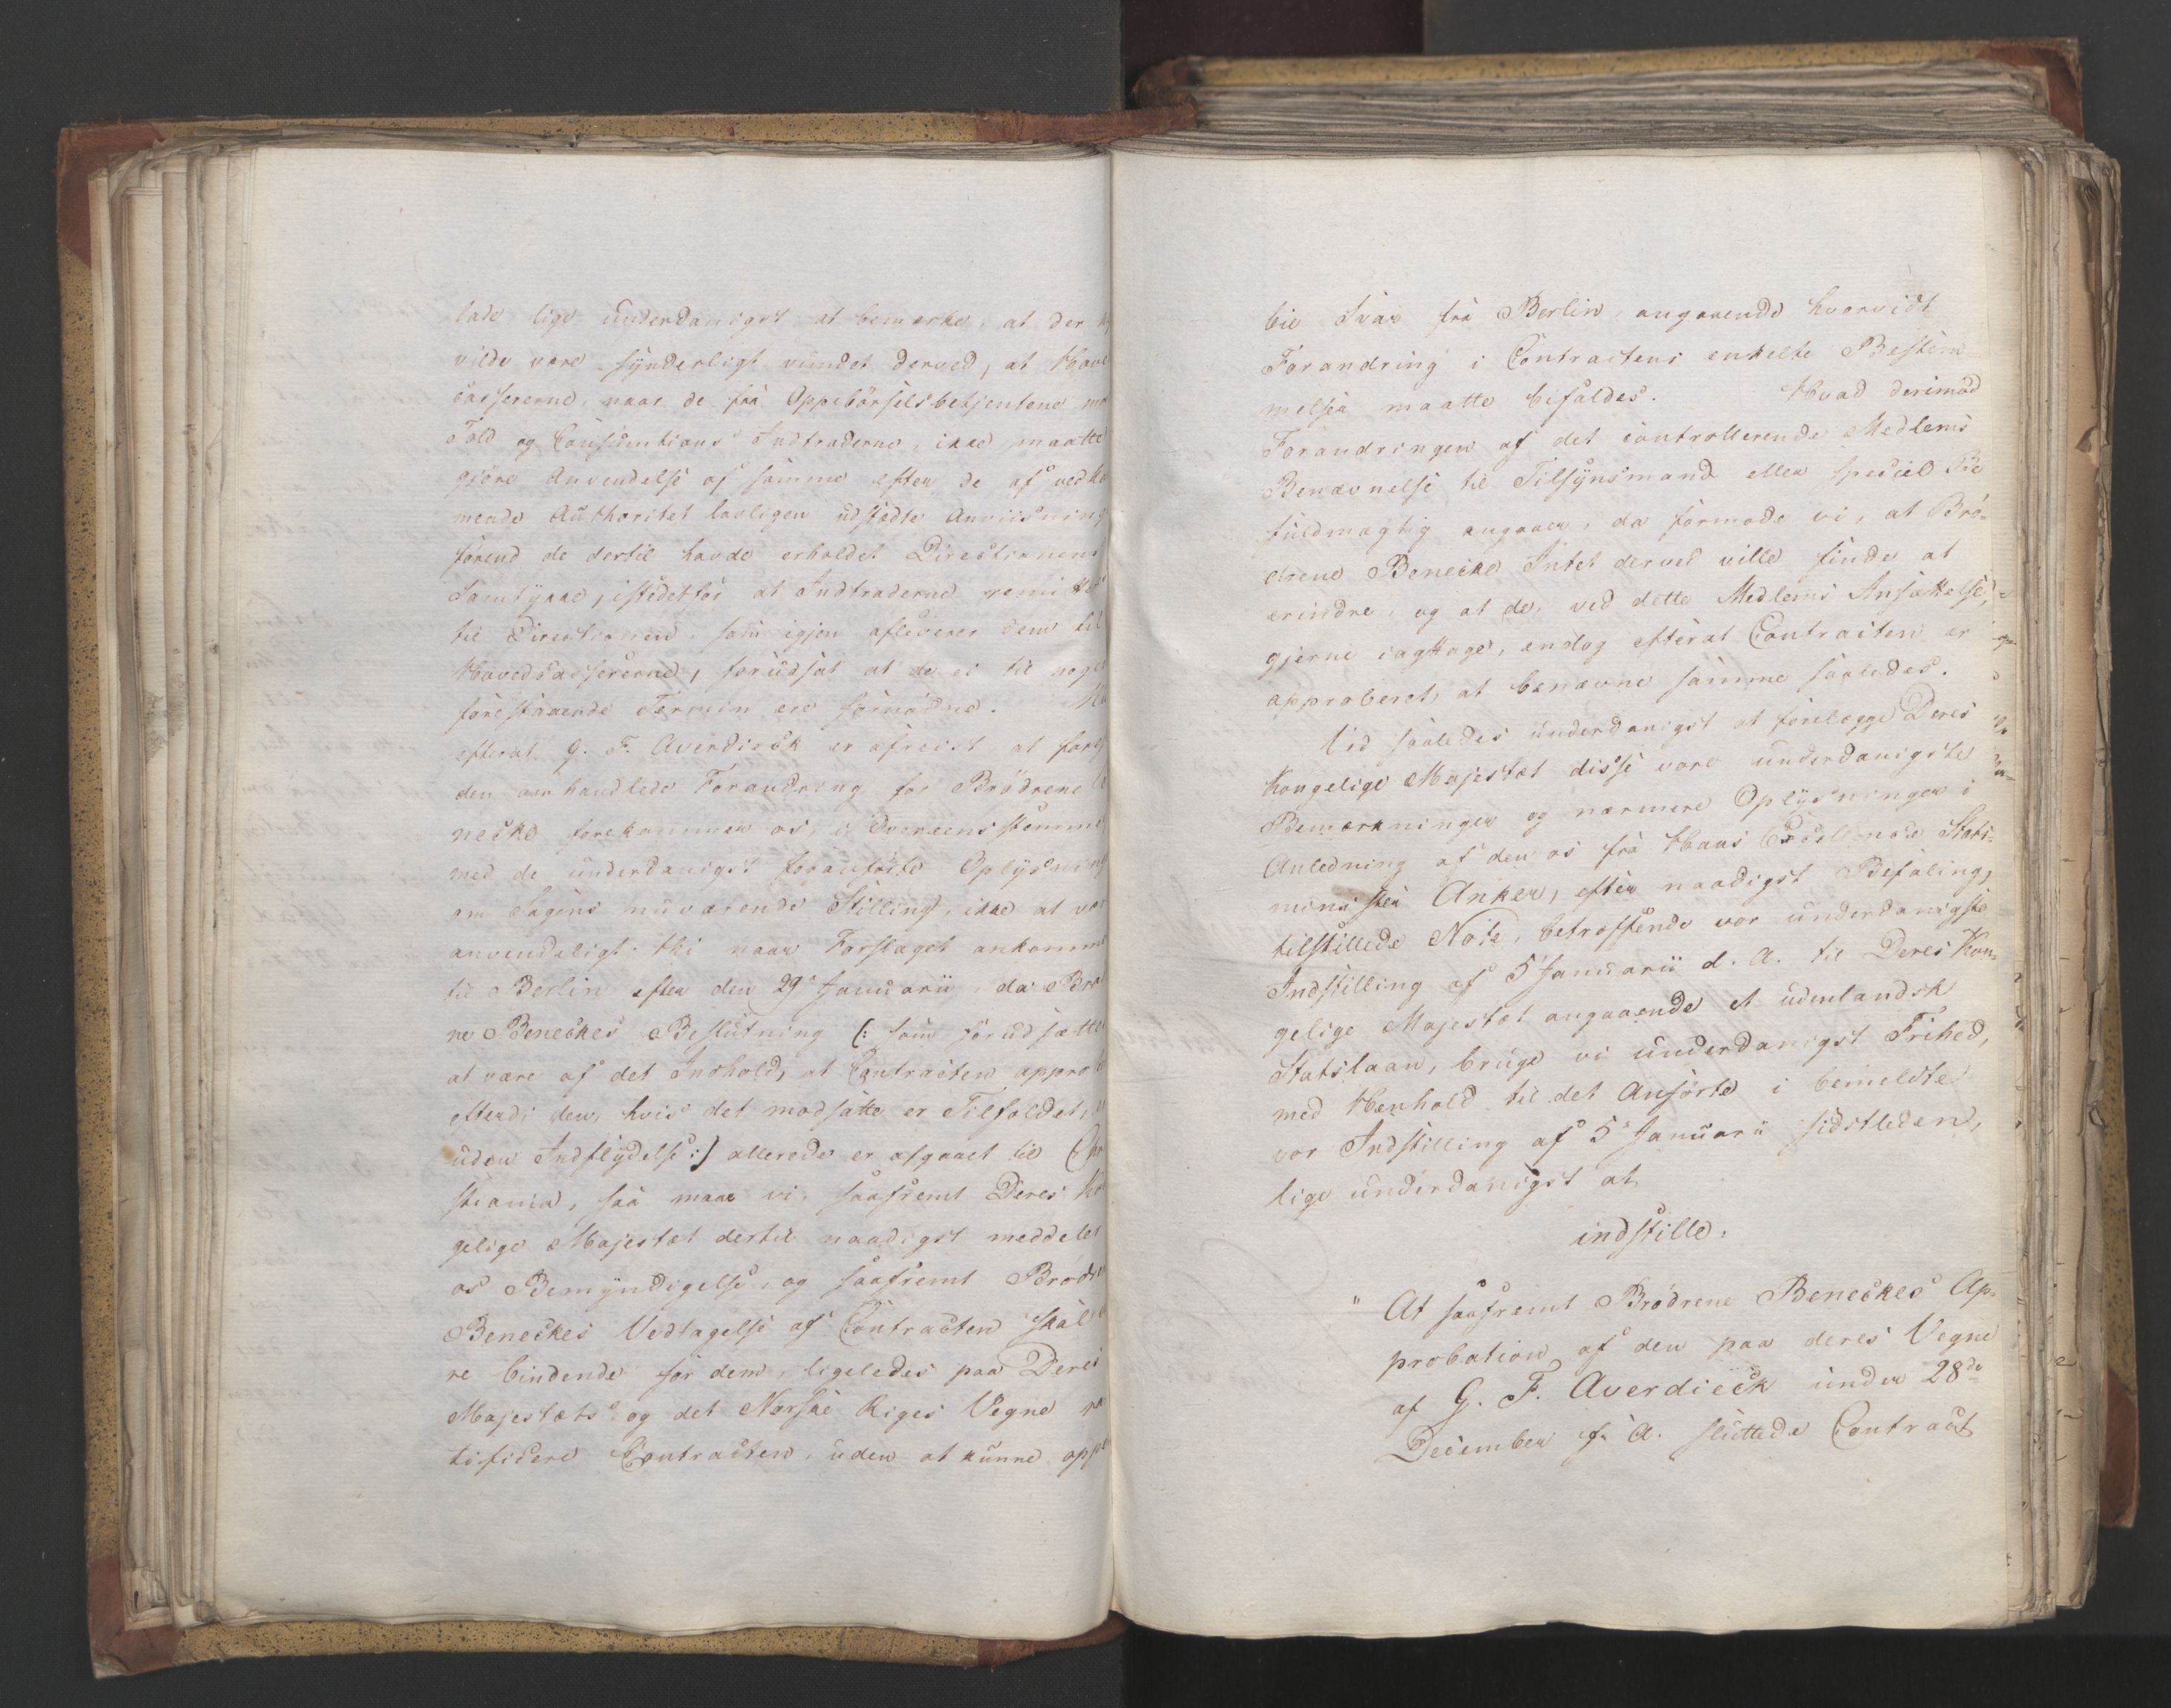 lade lige underdanigst at bemerke, at der
vilde være synderligt vundet derved, at Hoved
casserne, naar de fra Oppebörselsbetjentene
Told og Consumtions Indtraderne, ikke maatte
gjöre Anvendelse af samme efter de af vedko
mende Authoritet lovligen udstædte Anviisning
förend de dertil havde erholdet Directionens
Samtykke, istedetfor at Indtraderne remit
til Directionen, som igjen afleverer dem til
Hovedcasserne, forudsat at de ei til noge
forestaaende Termin ere fornödne.
efterat G. F. Averdieck er afreist, at fore
den omhandlede Forandring for Brödrene
necke forekommer os, i Overeensstemme
med de underdanigst foranförte Oplysning
om Sagens nuværende Stilling, ikke at vær
anvendeligt. thi naar Forslaget ankomme
til Berlin efter den 29de Januarii, da Bröd
ne Beneckes Beslutning (: som forudsætte
at være af det Indhold, at Contracten appro
efterdi den, hvis det modsatte er Tilfældet,
uden Indflydelse :) allerede er afgaaet til Chri
stiania, saa maae vi, saafremt Deres Ko
gelige Majestæt dertil naadigst meddeler
os Bemyndigelse, og saafremt Brödre
Beneckes Vedtagelse af Contracten skal
re bindende for dem, ligeledes paa Deres
Majestæts og det Norske Riges Vegne ra
tificere Contracten, uden at kunne oppe
bie Svar fra Berlin, angaaende hvorvidt
Forandring i Contractens enkelte Bestem
melser maatte bifaldes. Hvad derimod
Forandringen af det controllerende Medlems
Benævnelse til Tilsynsmand eller speciel Be
fuldmægtig angaaer, da formode vi, at Brö-
drene Benecke Intet derved ville finde at
erindre, og at de, ved dette Medlems Ansættelse,
gjerne iagttage, endog efterat Contracten er
approberet, at benævne samme saaledes.
Vid saaledes underdanigst at forelægge Deres
Kongelige Majestæt disse vore underdanigste
Bemærkninger og nærmere Oplysninger i
Anledning af den os fra Hans Excellence Stats-
minister Anker, efter naadigst Befaling,
tilstillede Note, betræffende vor underdanigste
Indstilling af 5te Januarii d. A. til Deres Kon-
gelige Majestæt angaaende et udenlandsk
Statslaan, bruge vi underdanigst Frihed,
med Henhold til det Anförte i bemeldte
vor Indstilling af 5te Januarii sidstleden,
lige underdanigst at
indstille:
" At saafremt Brödrene Beneckes Ap-
probation af den paa deres Vegne
af G. F. Averdieck under 28de
December f. A. sluttede Contract